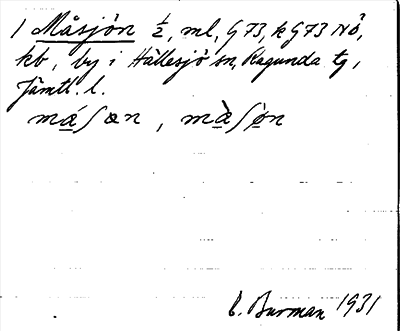 1 Måsjön ½, ml, G73, kG73 NÖ,
kb, by i Hällesjö sn, Ragunda tg,
Jämtl. l.
máʃœn, màʃøn
E. Burman 1931